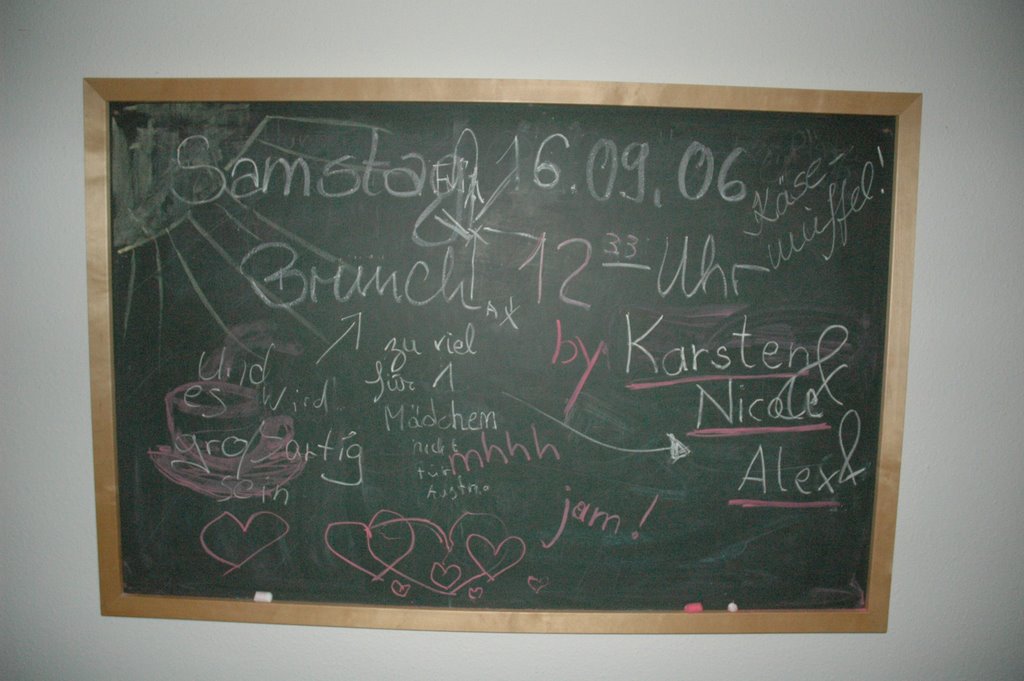 Samstag 16.09.06
Käse-
muffel!
Brunch 12 33 Uhr
by Karsten &
Nicole &
Alex &
zu viel
für 1
Mädchen
nicht
für
und
es wird
großartig
sein
mhhh
jam!